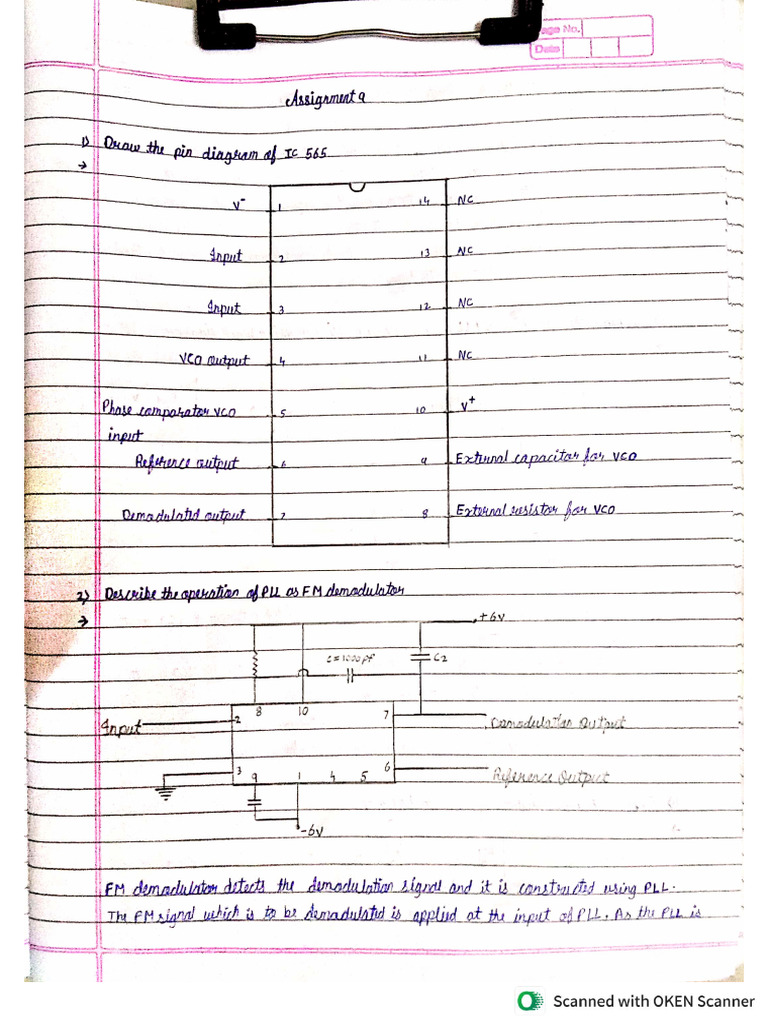 Page No.
Date
Assignment 9
1) Draw the pin diagram of IC 565
→
V⁻ 1 14 NC
Input 2 13 NC
Input 3 12 NC
VCO output 4 11 NC
Phase comparator VCO 5 10 V⁺
input
Reference output 6 9 External capacitor for VCO
Demodulated output 7 8 External resistor for VCO
2) Describe the operation of PLL as FM demodulator
→
+6V
C = 1000 pf C2
8 10 7
Input 2 Demodulation Output
3 9 1 4 5 6 Reference Output
-6V
FM demodulator detects the demodulation signal and it is constructed using PLL.
The FM signal which is to be demodulated is applied at the input of PLL. As the PLL is
Scanned with OKEN Scanner